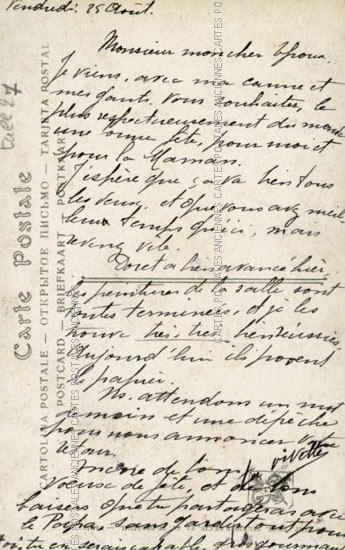 Vendredi. 25 Août.
Monsieur mon cher
Je viens, avec ma canne et
mes gants, vous souhaiter, le
plus respectueusement du monde
une bonne fête, pour moi et
pour la Maman.
J'espère que ça va bien tous
les deux, et que vous avez meil-
leur temps qu'ici, mais
venez vite.
Doret a bien avancé hier
les peintures de la salle sont
toutes terminées, et je les
trouve très, très bien réussies.
Aujourd'hui ils posent
le papier.
Ns. attendons un mot
demain et une dépêche
pour nous annoncer
retour.
Encore de bons
voeux de fête et de bons
baisers que tu partageras avec
le Papa, sans garder tout pour
toi, tu en serais capable
Carte Postale
CARTOLINA POSTALE — ОТКРЫТОЕ ПИСЬМО — TARJETA POSTAL
POSTCARD — BRIEFKAART — POSTKARTE
CARTES POSTALES ANCIENNES